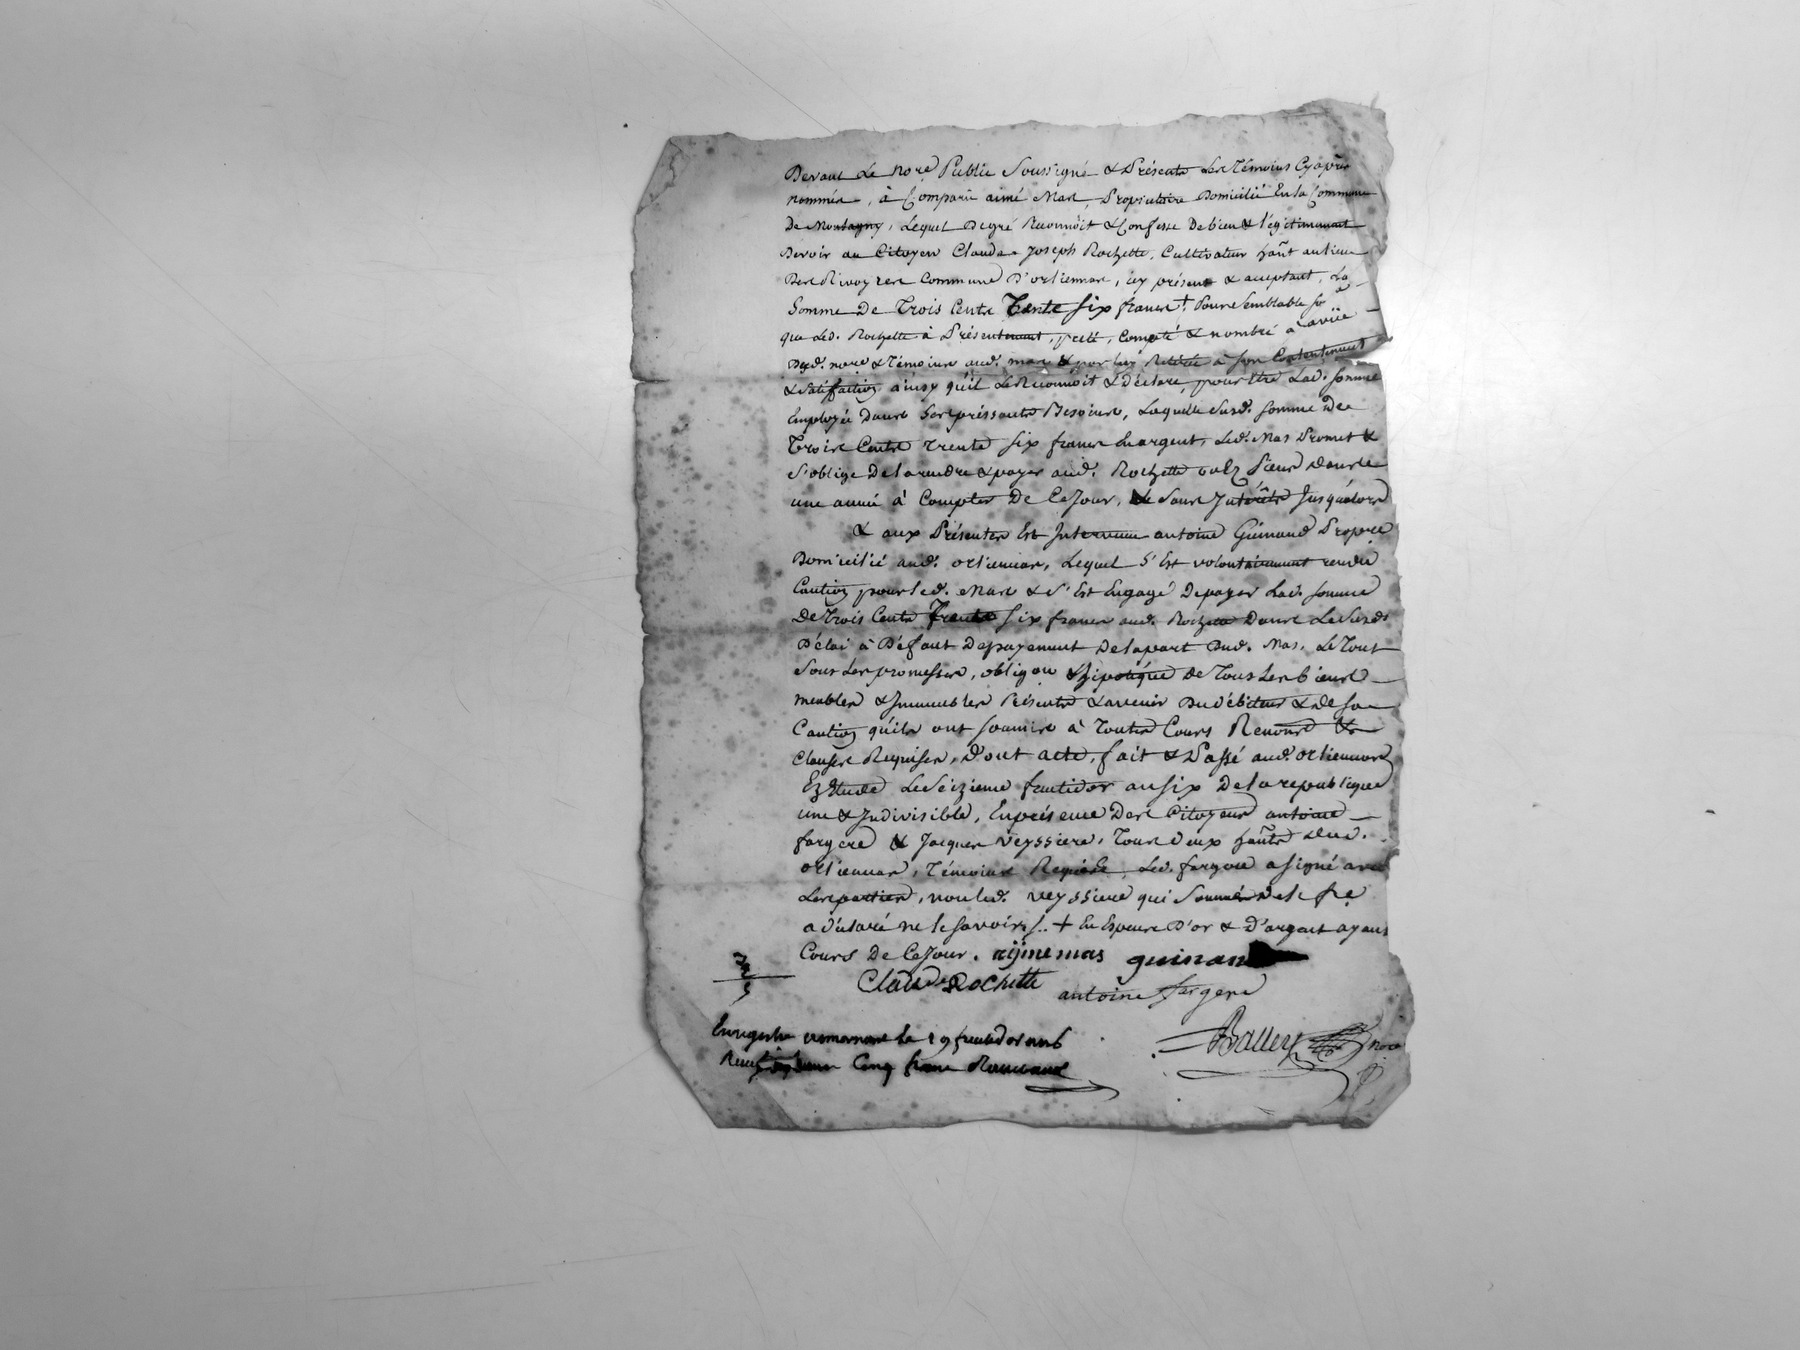 Devant Le nore Public Soussigné & Présents Les Témoins Cyaprès
nommés, à Comparu aimé Mas, Propriétaire Domicilié En la Commune
De Montagny, Lequel Degré Reconnoit & Confesse De bien & légitimement
Devoir au Citoyen Claude Joseph Rochette, Cultivateur hant au lieu
Des Rivoyres Commune D'orliennas, icy présent & acceptant, La
Somme De Trois Cents Trente Six francs + Pour Semblable
que Led. Rochette à Présentement, prêté, Compté & nombré à la vüe
Dud. nore & Témoins aud. mas & par luy Retirée à son Contentement
& Satisfaction ainsy qu'il Le Reconnoit & Déclare, pour être Lad. Somme
Employée Dans Ses préssants Besoins, Laquelle Susd. Somme De
Trois Cents trente Six francs En argent, Led. Mas Promet &
S'oblige De la rendre & payer aud. Rochette Dans
une année à Compter De Ce Jour, & Sans Intérêts Jusqu'alors
& aux Présentes Est Intervenu antoine Guinand Propre
Domicilié aud. orliennas, Lequel S'Est volontairement rendu
Caution pour led. Mas & S'Est Engagé De payer Lad. Somme
De Trois Cents Trente Six francs aud. Rochette Dans Le Susd.
Délai à Défaut De payement De la part Dud. Mas, Le Tout
Sous Les promesses, obligon & hipotéque De Tous Les biens
meubles & Immeubles Présents & avenir Du débiteur & de Sa
Caution qu'ils ont Soumis à Toutes Cours Renond &
Clauses Requises, Dont acte, fait & Passé aud. orliennas
Ez Etude Le Seizieme fructidor an Six De la republique
une & Indivisible, En présence Des Citoyens antoine
fargere & Jacques Veyssiere, Tous Deux hants aud.
orliennas, Témoins Requis, Led. fargere a signé avec
Les parties, non led. Veyssiere qui Sommé De le fre
a déclaré ne le Savoir ./. + En Espece D'or & D'argent ayant
Cours De Ce Jour. aymé mas guinand
Claude Rochette antoine fargere
Enregistré a mornant Le 19 fructidor an 6
Reçu Cinq francs
Balley nore